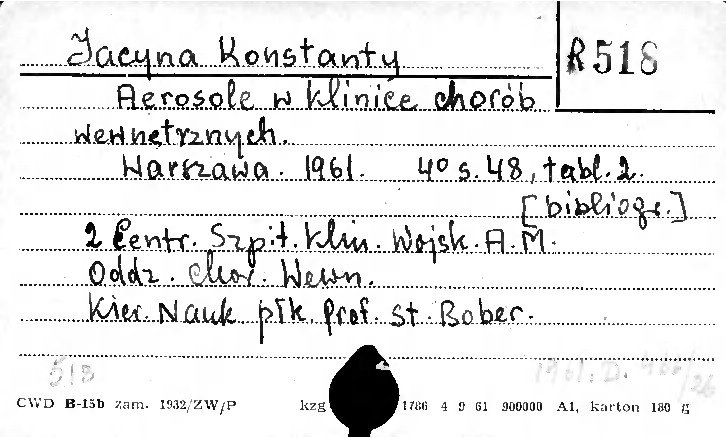 Jacyna Konstanty
R 518
Aerosole w klinice chorób
wewnętrznych.
Warszawa. 1961. 4° s. 48, tabl. 2.
[bibliogr.]
2 Centr. Szpit. Klin. Wojsk. A.M.
Oddz. Chor. Wewn.
Kier. Nauk płk. Prof. St. Bober.
518
1961. D. /26
CWD B-15b zam. 1932/ZW/P kzg 1786 4 9 61 900000 A1, karton 180 g